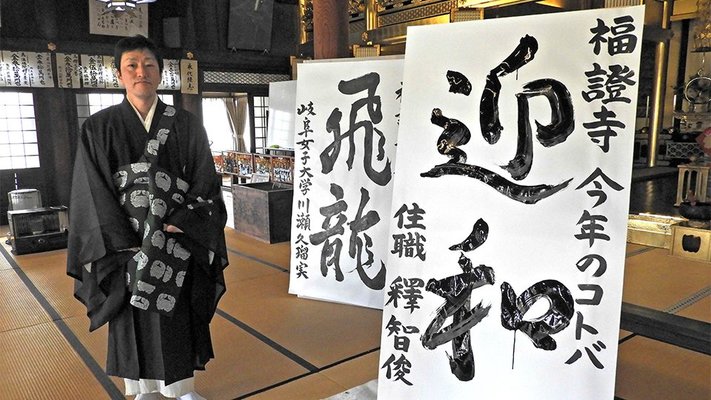 福證寺 今年のコトバ
迎和
住職 釋智俊
飛龍
岐阜女子大学川瀬久瑠実